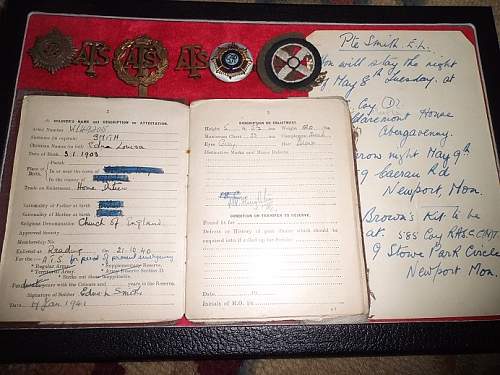 ATS
ATS
ATS
2
SOLDIER'S NAME and DESCRIPTION on ATTESTATION.
Army Number
Surname (in capitals) SMITH
Christian Names (in full) Edna Louisa
Date of Birth 3.1.1903
Place of Birth
Parish
In or near the town of
In the county of
Trade on Enlistment Home Duties
Nationality of Father at birth
Nationality of Mother at birth
Religious Denomination Church of England
Approved Society
Membership No.
Enlisted at Reading on 21.10.40
For the ATS for period of present emergency
* Regular Army. * Supplementary Reserve.
* Territorial Army. * Army Reserve Section D.
* Strike out those inapplicable.
For years with the Colours and years in the Reserve.
Signature of Soldier Edna L Smith
Date 17 Jan 1941
3
DESCRIPTION ON ENLISTMENT.
Height ft. ins. Weight lbs.
Maximum Chest ins. Complexion
Eyes Grey Hair
Distinctive Marks and Minor Defects
CONDITION ON TRANSFER TO RESERVE.
Found fit for
Defects or History of past illness which should be
enquired into if called up for Service
Date 19
Initials of M.O. i/c
Pte Smith. E.L.
You will stay the night
of May 8th Tuesday. at
Coy D
Claremont House
Abergavenny.
night May 9th
9 Caerau Rd
Newport, Mon.
Brown's Kit to be
at. 585 Coy RASC.(MT)
9 Stowe Park Circle
Newport Mon